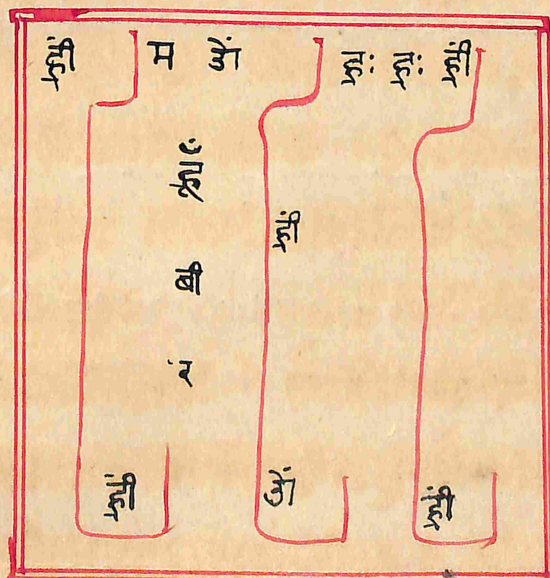 ह्रीं म ओं ह्रः ह्रः ह्रीं
ह्रीं
बी
र
ह्रीं ओं ह्रीं